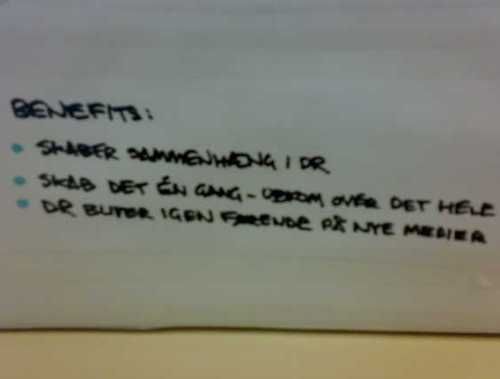 BENEFITS:
• SKABER SAMMENHÆNG I DR
• SKAB DET ÉN GANG - UDKOM OVER DET HELE
• DR BLIVER IGEN FØRENDE PÅ NYE MEDIER